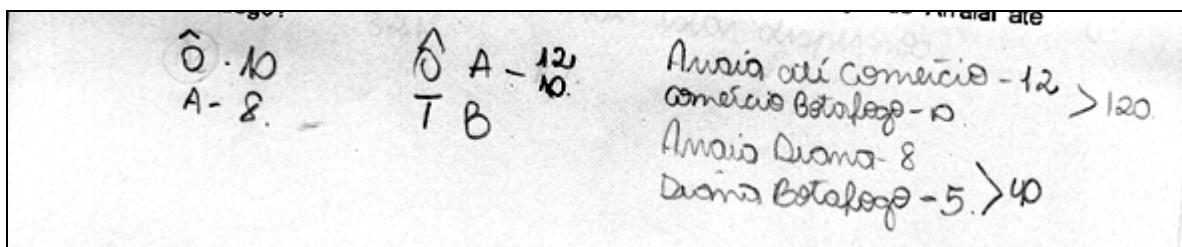 Arraial até
Ô · 10
A - 8.
Ô A - 12
10.
T B
até Comércio - 12
comércio Botafogo - 10 > 120.
Diana - 8
Diana Botafogo - 5. > 40